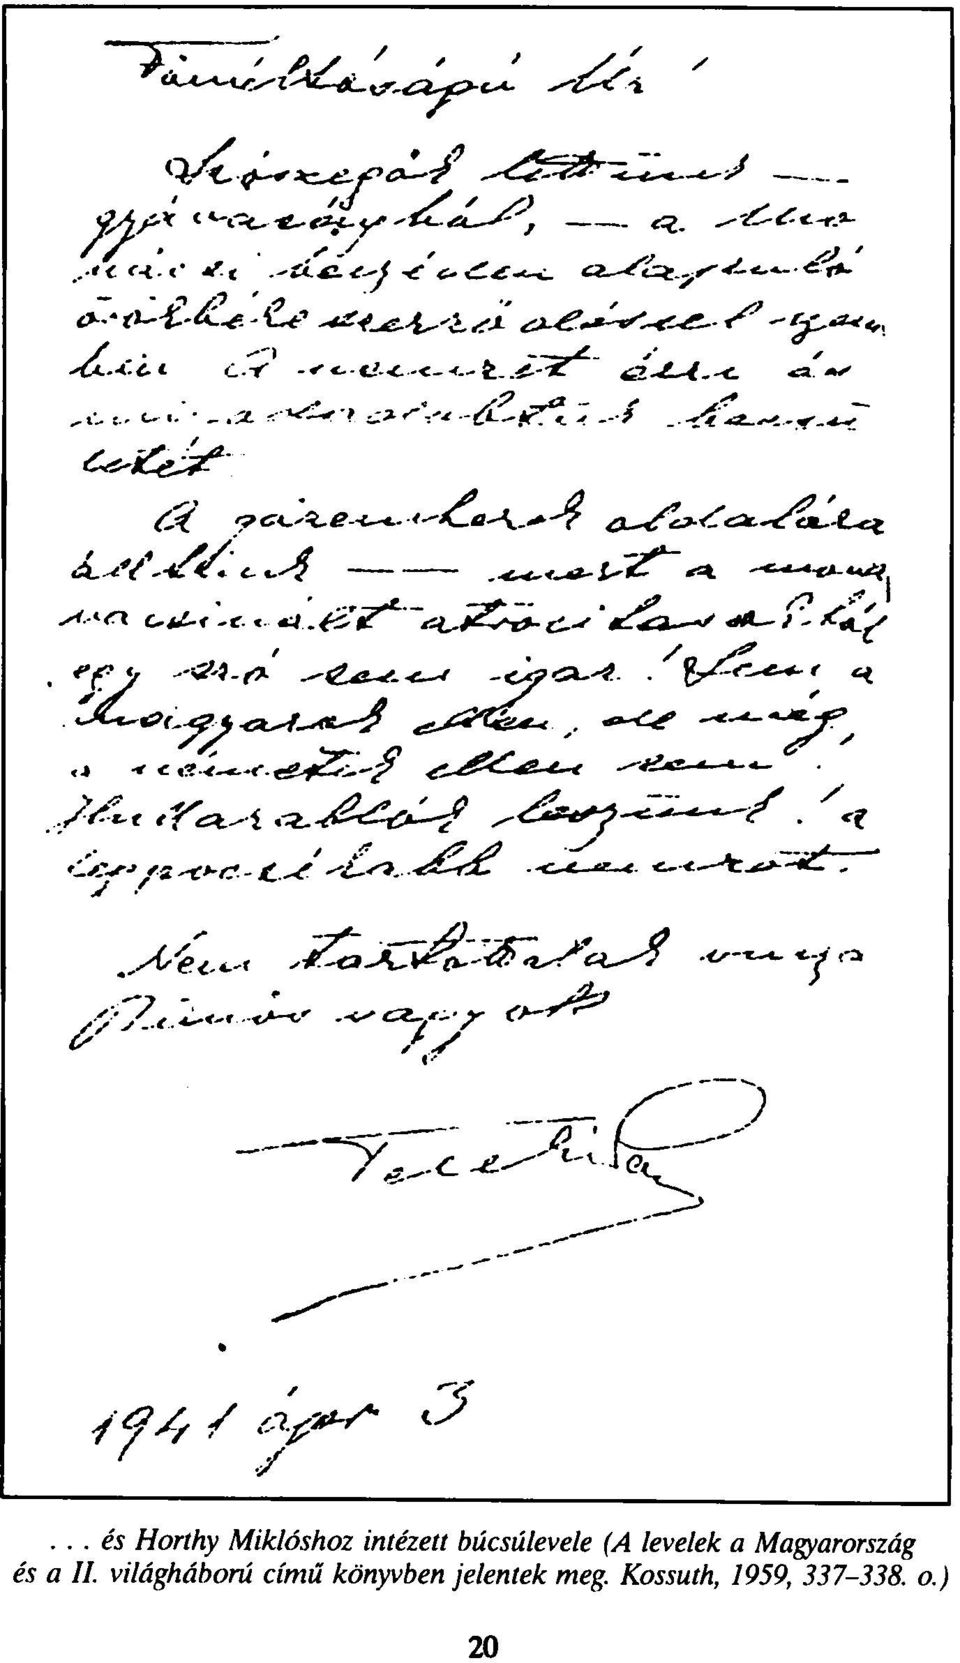 Főméltóságú Úr!
Szószegők lettünk —
gyávaságból, — a mo
hácsi beszéden alapuló
örökbéke szerződéssel szem
ben. A nemzet érzi és
mi odadobtuk becsü
letét
A gazemberek oldalára
álltunk —— mert a mond
vacsinált atrocitásokból
egy szó sem igaz! Sem a
magyarok ellen, de még
a németek ellen sem!
Hullarablók leszünk! a
legpocsékabb nemzet.
Nem tartottalak vissza
Bűnös vagyok
Teleki Pál
1941 ápr 3
. . . és Horthy Miklóshoz intézett búcsúlevele (A levelek a Magyarország
és a II. világháború című könyvben jelentek meg. Kossuth, 1959, 337–338. o.)
20